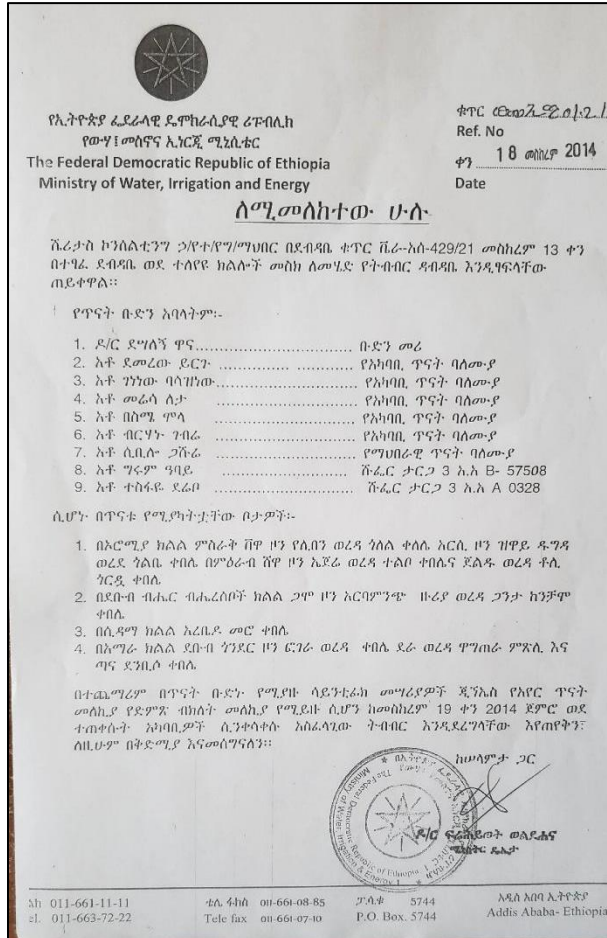 የኢትዮጵያ ፌደራላዊ ዴሞክራሲያዊ ሪፑብሊክ
የውሃ፤መስኖና ኢነርጂ ሚኒስቴር
The Federal Democratic Republic of Ethiopia
Ministry of Water, Irrigation and Energy
ቁጥር
Ref. No
ቀን 18 መስከረም 2014
Date
ለሚመለከተው ሁሉ
ሼሪታስ ኮንሰልቲንግ ኃ/የተ/የግ/ማህበር በደብዳቤ ቁጥር ቬራ--አሰ-429/21 መስከረም 13 ቀን
በተፃፈ ደብዳቤ ወደ ተለየዩ ክልሎች መስክ ለመሄድ የትብብር ዳብዳቤ እንዲፃፍላቸው
ጠይቀዋል፡፡
የጥናት ቡድን አባላትም፡-
1. ዶ/ር ደሣለኝ ዋና.............................. ቡድን መሪ
2. አቶ ደመረው ይርጉ ............... ................ የአካባቢ ጥናት ባለሙያ
3. አቶ ገነነው ባሳዝነው.............................. የአካባቢ ጥናት ባለሙያ
4. አቶ መሬሳ ለታ .............................. የአካባቢ ጥናት ባለሙያ
5. አቶ በስሜ ሞላ .............................. የአካባቢ ጥናት ባለሙያ
6. አቶ ብርሃኑ ጎብሬ .............................. የአካባቢ ጥናት ባለሙያ
7. አቶ ሲቢሎ ጋሹሬ .............................. የማህበራዊ ጥናት ባለሙያ
8. አቶ ግሩም ዓባይ .............................. ሹፌር ታርጋ 3 አ.አ B- 57508
9. አቶ ተስፋዬ ደሬቦ .............................. ሹፌር ታርጋ 3 አ.አ A 0328
ሲሆኑ በጥናቱ የሚያካትቷቸው ቦታዎች፡-
1. በኦሮሚያ ክልል ምስራቅ ሸዋ ዞን የሊበን ወረዳ ጎለል ቀበሌ አርሲ ዞን ዝዋይ ዱግዳ
ወረደ ጎልቤ ቀበሌ በምዕራብ ሸዋ ዞን ኤጀሬ ወረዳ ተልቦ ቀበሌና ጀልዱ ወረዳ ቶሊ
ጎርዷ ቀበሌ
2. በደቡብ ብሔር ብሔረሰቦች ክልል ጋሞ ዞን አርባምንጭ ዙሪያ ወረዳ ጋንታ ከንቻሞ
ቀበሌ
3. በሲዳማ ክልል አረቤዶ መሮ ቀበሌ
4. በአማራ ክልል ደቡብ ጎንደር ዞን ፎገራ ወረዳ ቀበሌ ደራ ወረዳ ዋግጠራ ምጽሊ እና
ጣና ደንቢሶ ቀበሌ
በተጨማሪም በጥናት ቡድኑ የሚያዙ ሳይንቲፊክ መሣሪያዎች ጂኚኤስ የአየር ጥናት
መለኪያ የድምጽ ብክለት መለኪያ የሚይዙ ሲሆን ከመስከረም 19 ቀን 2014 ጀምሮ ወደ
ተጠቀሱት አካባቢዎች ሲንቀሳቀሱ አስፈላጊው ትብብር እንዲደረግላቸው እየጠየቅን፣
ለዚሁም በቅድሚያ እናመሰግናለን፡፡
ከሠላምታ ጋር
ዶ/ር ፍሬሕይወት ወልደሐና
ሚኒስትር ዴኤታ
011-661-11-11 ቴሌ ፋክስ 011-661-08-85 ፖ.ሳ.ቁ 5744 አዲስ አበባ ኢትዮጵያ
el. 011-663-72-22 Tele fax 011-661-07-10 P.O. Box. 5744 Addis Ababa- Ethiopia